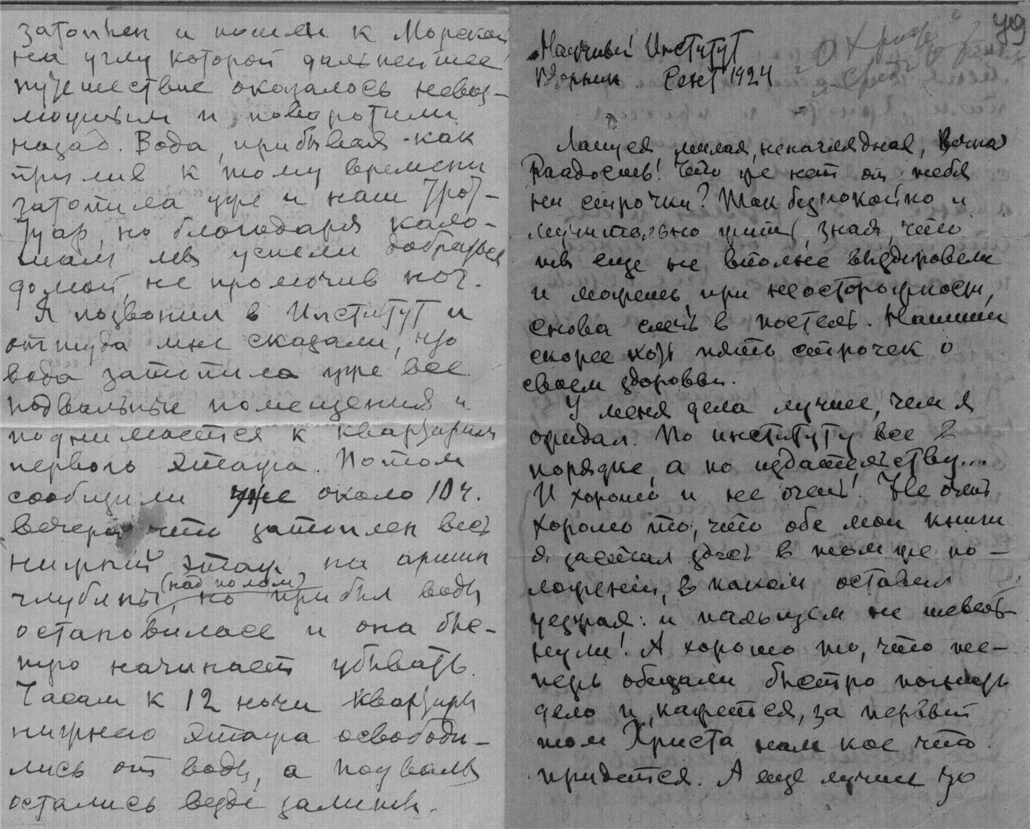 затоплен и пошли к Морской
на углу которой дальнейшее
путешествие оказалось невоз-
можным и поворотили
назад. Вода, прибывая как
прилив к тому времени
затопила уже и наш трот-
туар, но благодаря кало-
шам мы успели добраться
домой, не промочив ног.
Я позвонил в Институт и
оттуда мне сказали, что
вода затопила уже все
подвальные помещения и
поднимается к квартирам
первого этажа. Потом
сообщили уже около 10 ч.
вечера что затоплен весь
нижний этаж на аршин
глубины (над полом), но прибыл воды
остановилась и она быс-
тро начинает убывать.
Часам к 12 ночи квартиры
нижнего этажа освободи-
лись от воды, а подвалы
остались везде залиты.
79
Научный Институт
Вторник Сент 1924
Лапуся милая, ненаглядная,
Раадость! Что же нет от тебя
ни строчки? Так безпокойно и
мучительно жить, зная, что
ты еще не вполне выздоровела
и можешь, при неосторожности,
снова слечь в постель. Напиши
скорее хоть пять строчек о
своем здоровьи.
У меня дела лучше, чем я
ожидал. По институту все в
порядке, а по издательству....
И хорошо и не очень! Не очень
хорошо то, что обе мои книги
я застал здесь в том же по-
ложении, в каком оставил
уезжая: и пальцем не шевель-
нули! А хорошо то, что те-
перь обещали быстро двинуть
дело и, кажется, за первый
том Христа нам кое что
придется. А еще лучше что